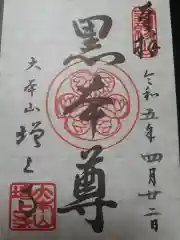 奉拝
令和五年四月廿二日
黒本尊
大本山増上寺